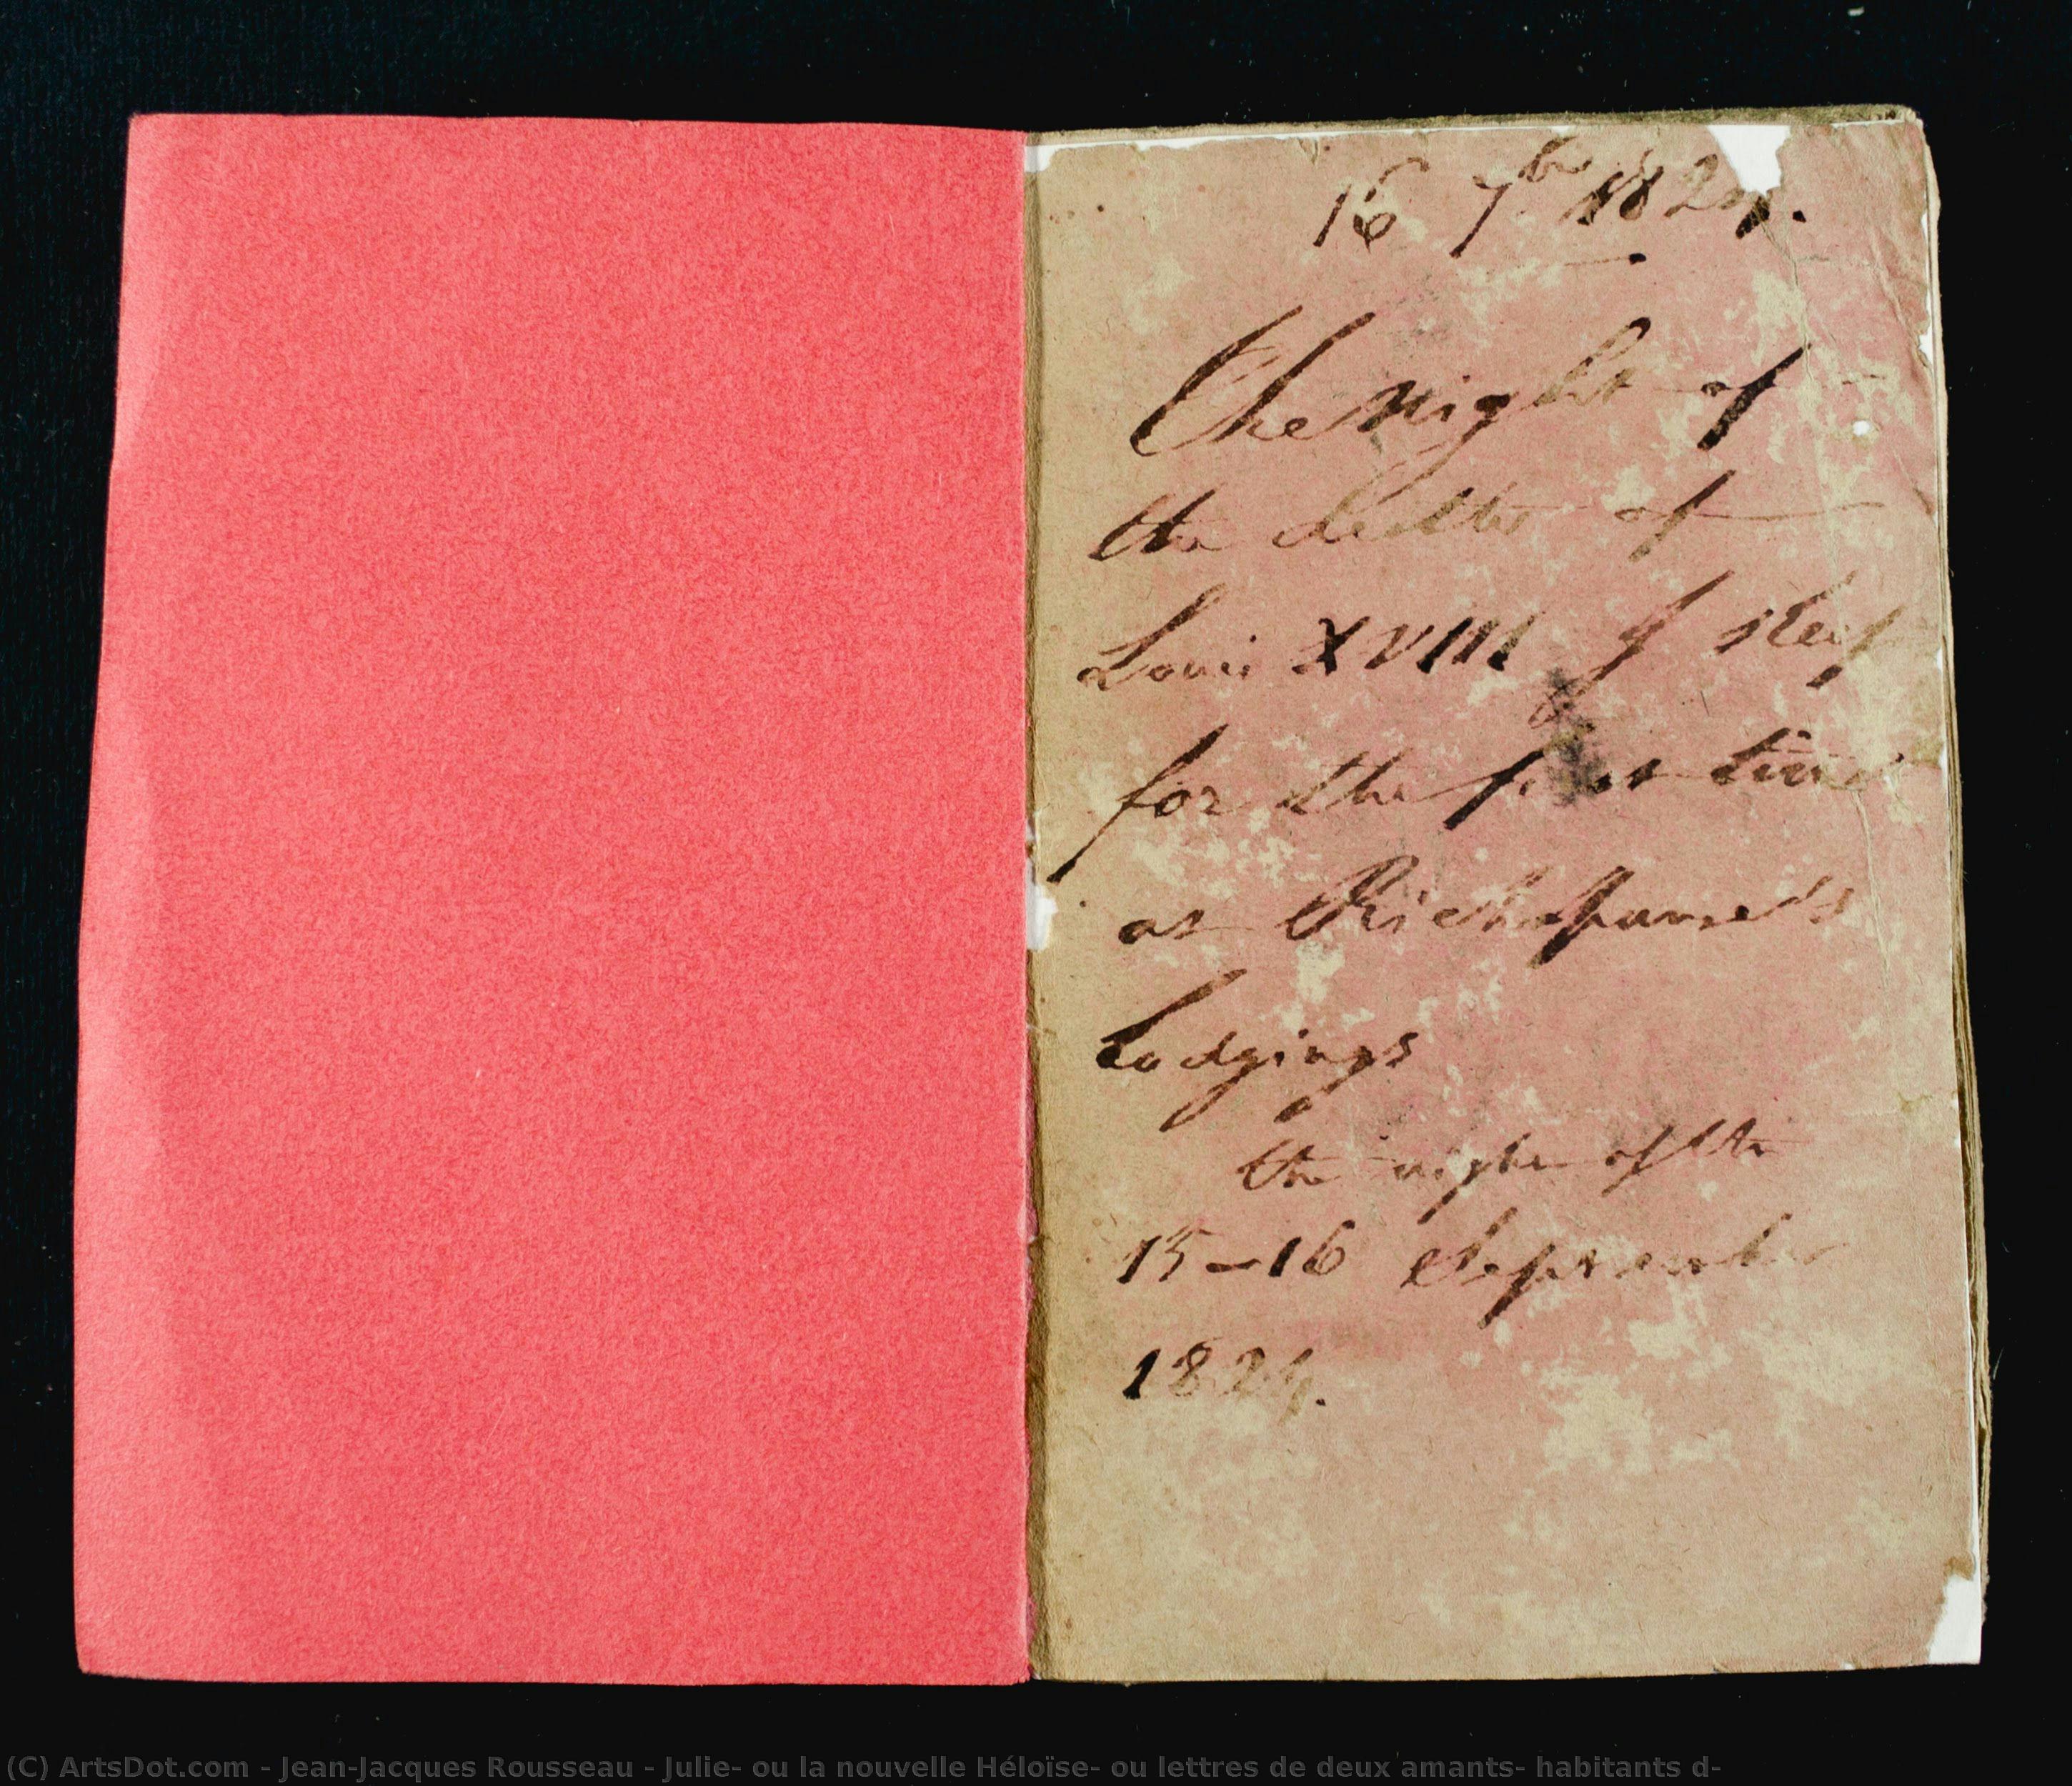 16 7bre 1824.
The night of
the death of
Louis XVIII I sleep
for the first time
at Richepanse's
Lodgings
the night of the
15-16 September
1824.
(C) ArtsDot.com - Jean-Jacques Rousseau - Julie- ou la nouvelle Héloïse- ou lettres de deux amants- habitants d-